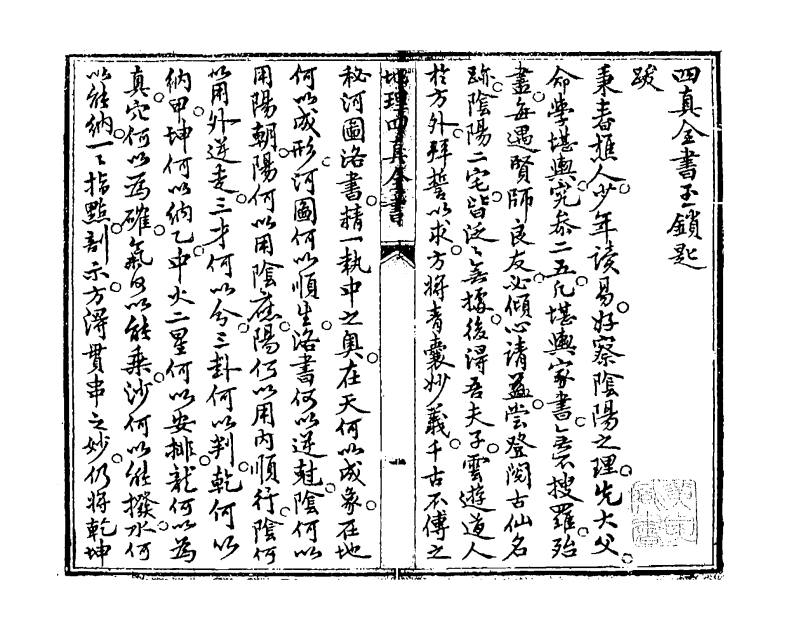 四真全書玉鎖匙
跋
秉春樵人少年读易好察陰陽之理先大父
命學堪輿究叅二五凡堪輿家書無不搜羅殆
盡每遇賢師良友必傾心請益嘗登閱古仙名
跡陰陽二宅皆泛泛無據後得吾夫子雲遊道人
於方外拜誓以求方將青囊妙義千古不傳之
地理四真全書
一
秘河圖洛書精一執中之奥在天何以成象在地
何以成形河圖何以順生洛書何以逆尅陰何以
用陽朝陽何以用陰應陽何以用内順行陰何
以用外逆走三才何以分三卦何以判乾何以
納甲坤何以納乙中火二星何以安排龍何以為
真穴何以為確氣何以能乘沙何以能撥水何
以能納一一指點剖示方得貫串之妙仍将乾坤